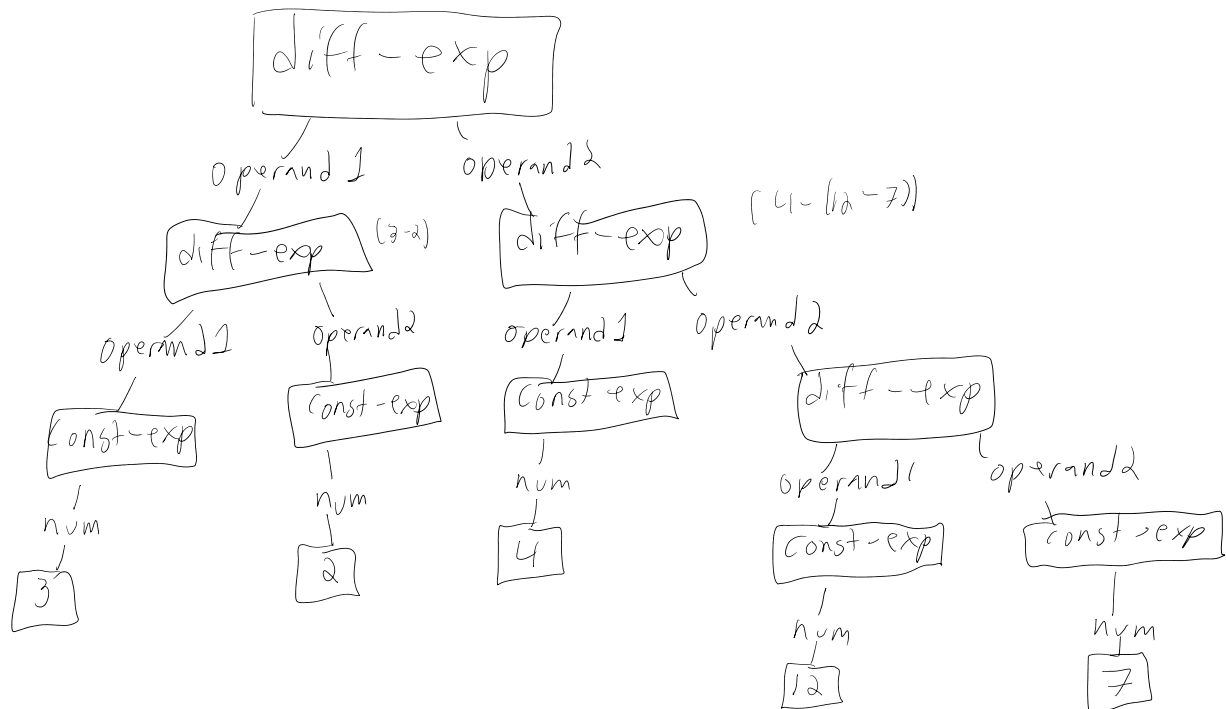 diff-exp
operand 1
operand 2
diff-exp
(3-2)
diff-exp
(4-(12-7))
operand 1
operand 2
operand 1
operand 2
const-exp
const-exp
const-exp
diff-exp
num
num
num
operand 1
operand 2
3
2
4
const-exp
const-exp
num
num
12
7